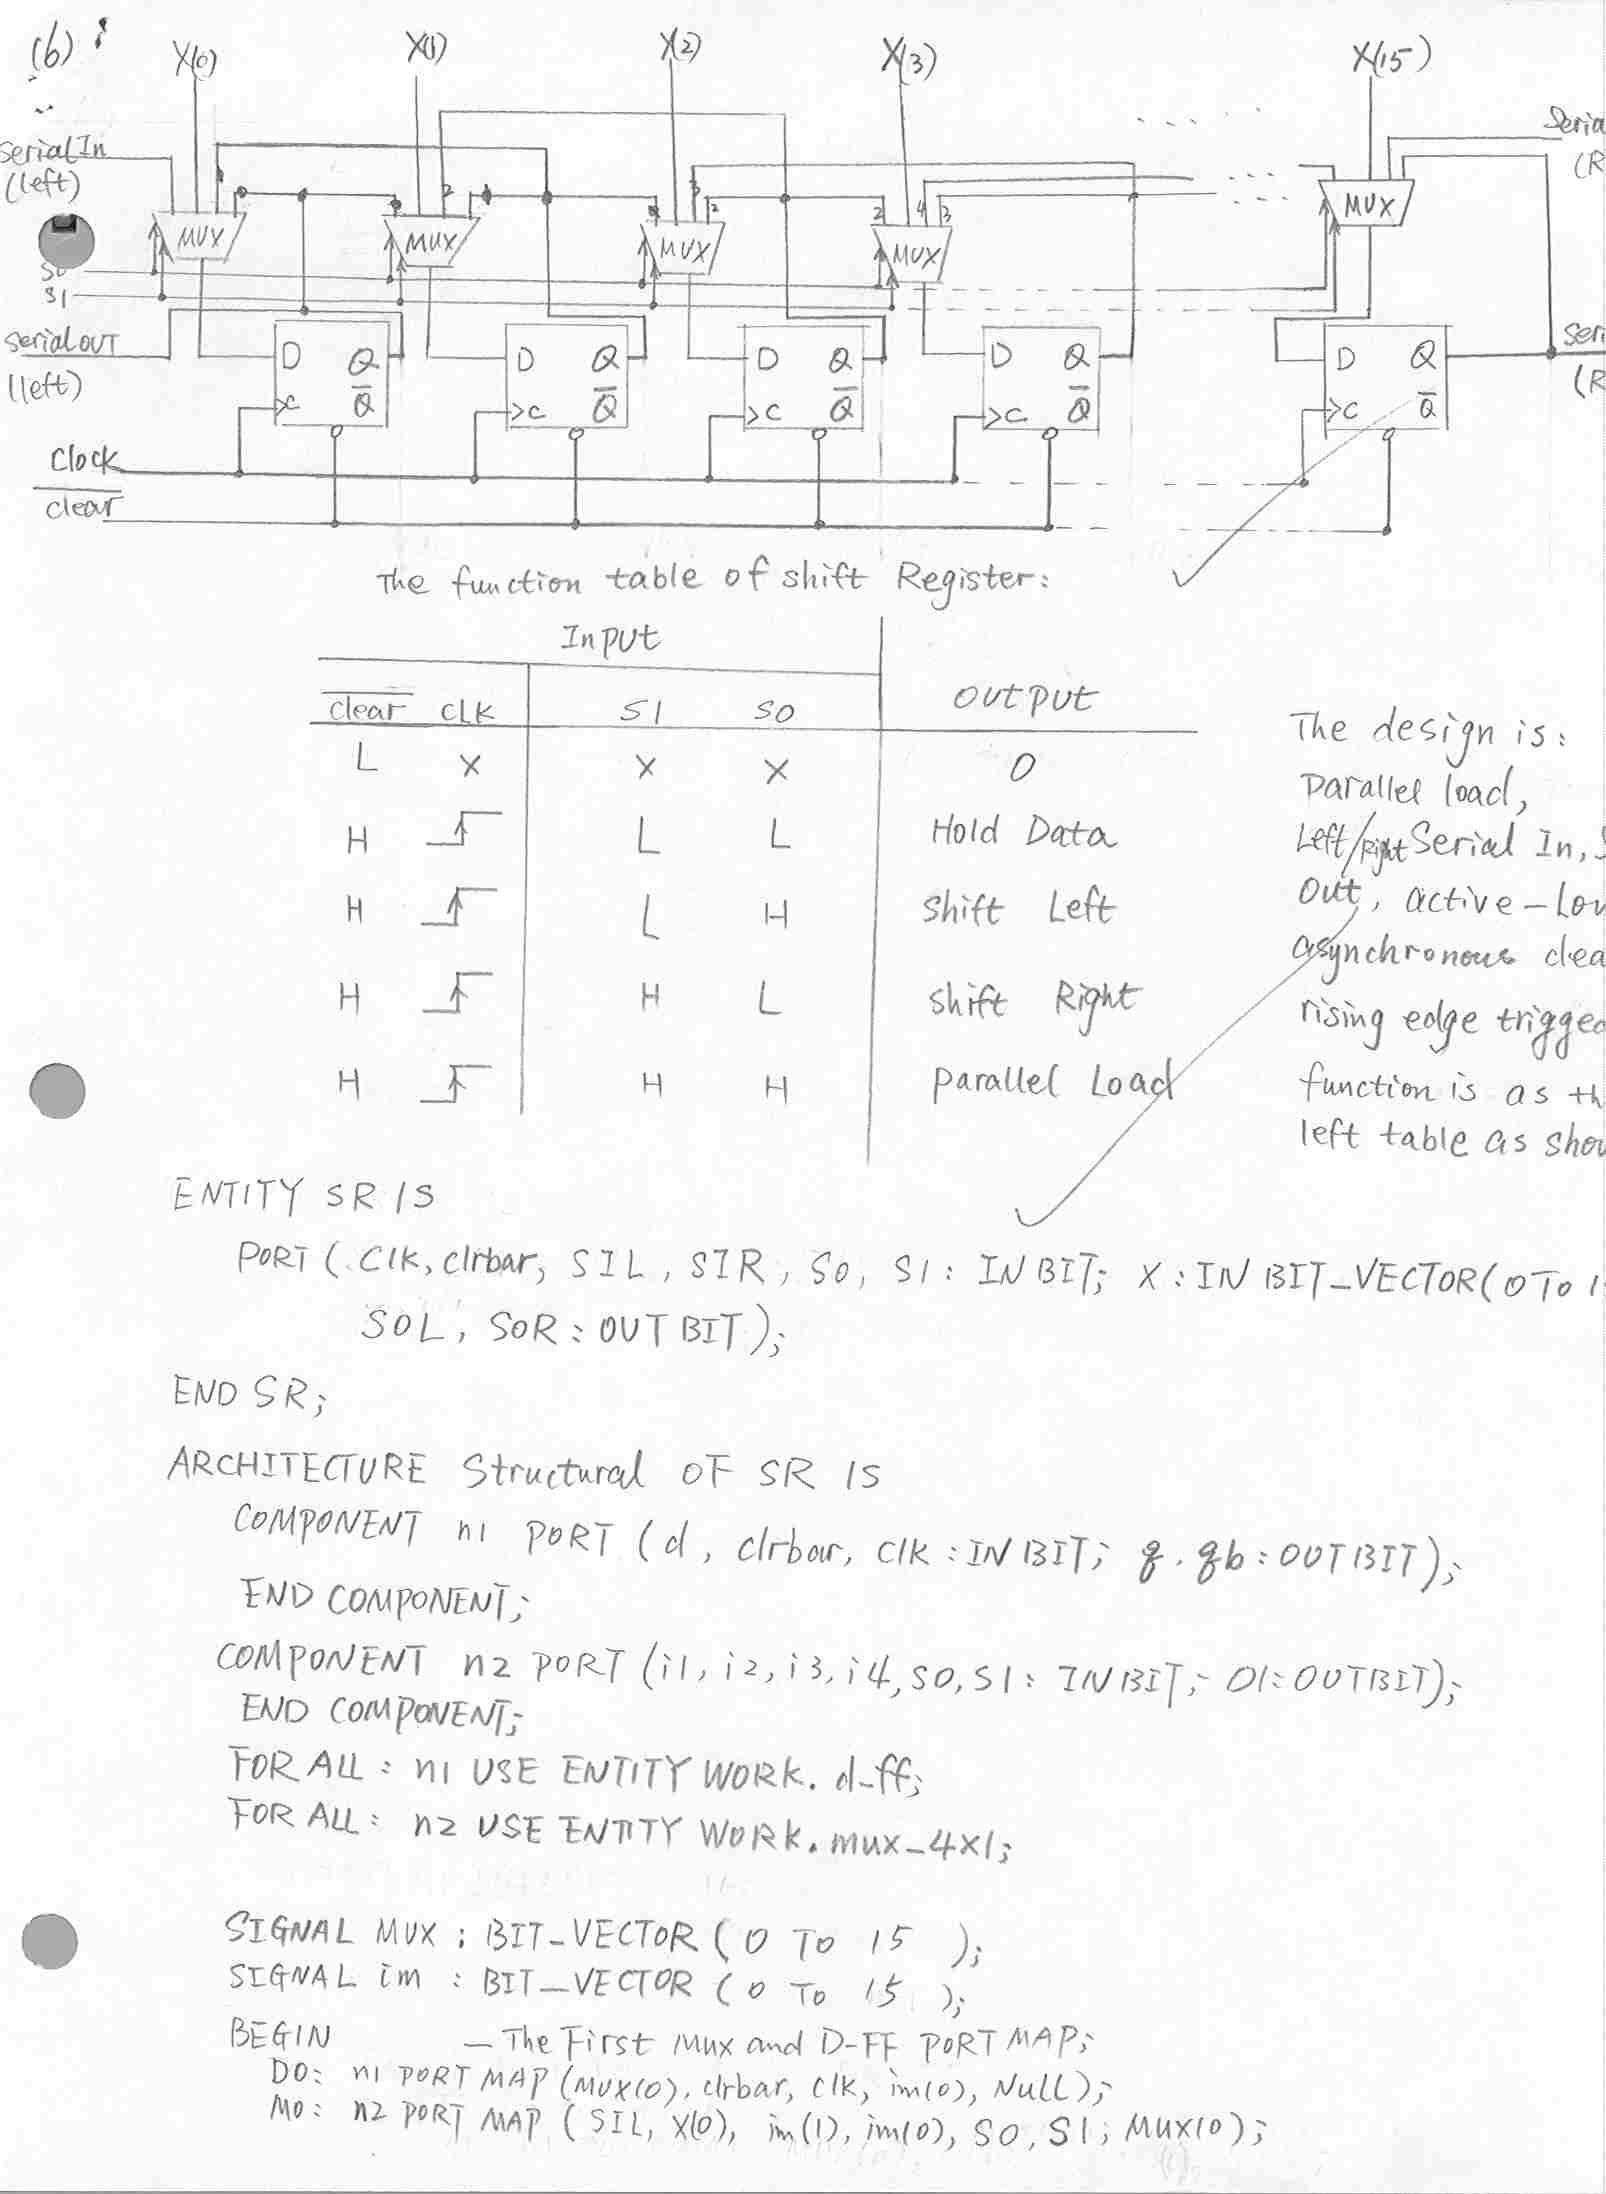 (b):
X(0) X(1) X(2) X(3) X(15)
Serial In
(left)
Seria
(R
1 0 0 2 1 0 3 2 2 4 3
MUX MUX MUX MUX MUX
S0
S1
Serial OUT
(left)
D Q D Q D Q D Q D Q
>C Q̅ >C Q̅ >C Q̅ >C Q̅ >C Q̅
Seri
(R
Clock
clear
The function table of shift Register:
Input
clear CLK S1 S0 OUTPUT
L X X X 0
H L L Hold Data
H L H Shift Left
H H L Shift Right
H H H Parallel Load
The design is:
Parallel load,
Left/Right Serial In, S
Out, active-Low
asynchronous clea
rising edge trigge
function is as th
left table as show
ENTITY SR IS
PORT ( Clk, clrbar, SIL, SIR, S0, S1 : IN BIT; X : IN BIT_VECTOR( 0 TO 1
SOL, SOR : OUT BIT );
END SR;
ARCHITECTURE Structural OF SR IS
COMPONENT n1 PORT (d, clrbar, clk : IN BIT; q, qb : OUT BIT);
END COMPONENT;
COMPONENT n2 PORT (i1, i2, i3, i4, S0, S1 : IN BIT; O1 : OUT BIT);
END COMPONENT;
FOR ALL : n1 USE ENTITY WORK. d_ff;
FOR ALL : n2 USE ENTITY WORK. mux_4X1;
SIGNAL MUX : BIT_VECTOR ( 0 TO 15 );
SIGNAL im : BIT_VECTOR ( 0 TO 15 );
BEGIN — The First Mux and D-FF PORT MAP;
D0: n1 PORT MAP (MUX(0), clrbar, clk, im(0), Null);
M0: n2 PORT MAP ( SIL, X(0), im(1), im(0), S0, S1; MUX(0);